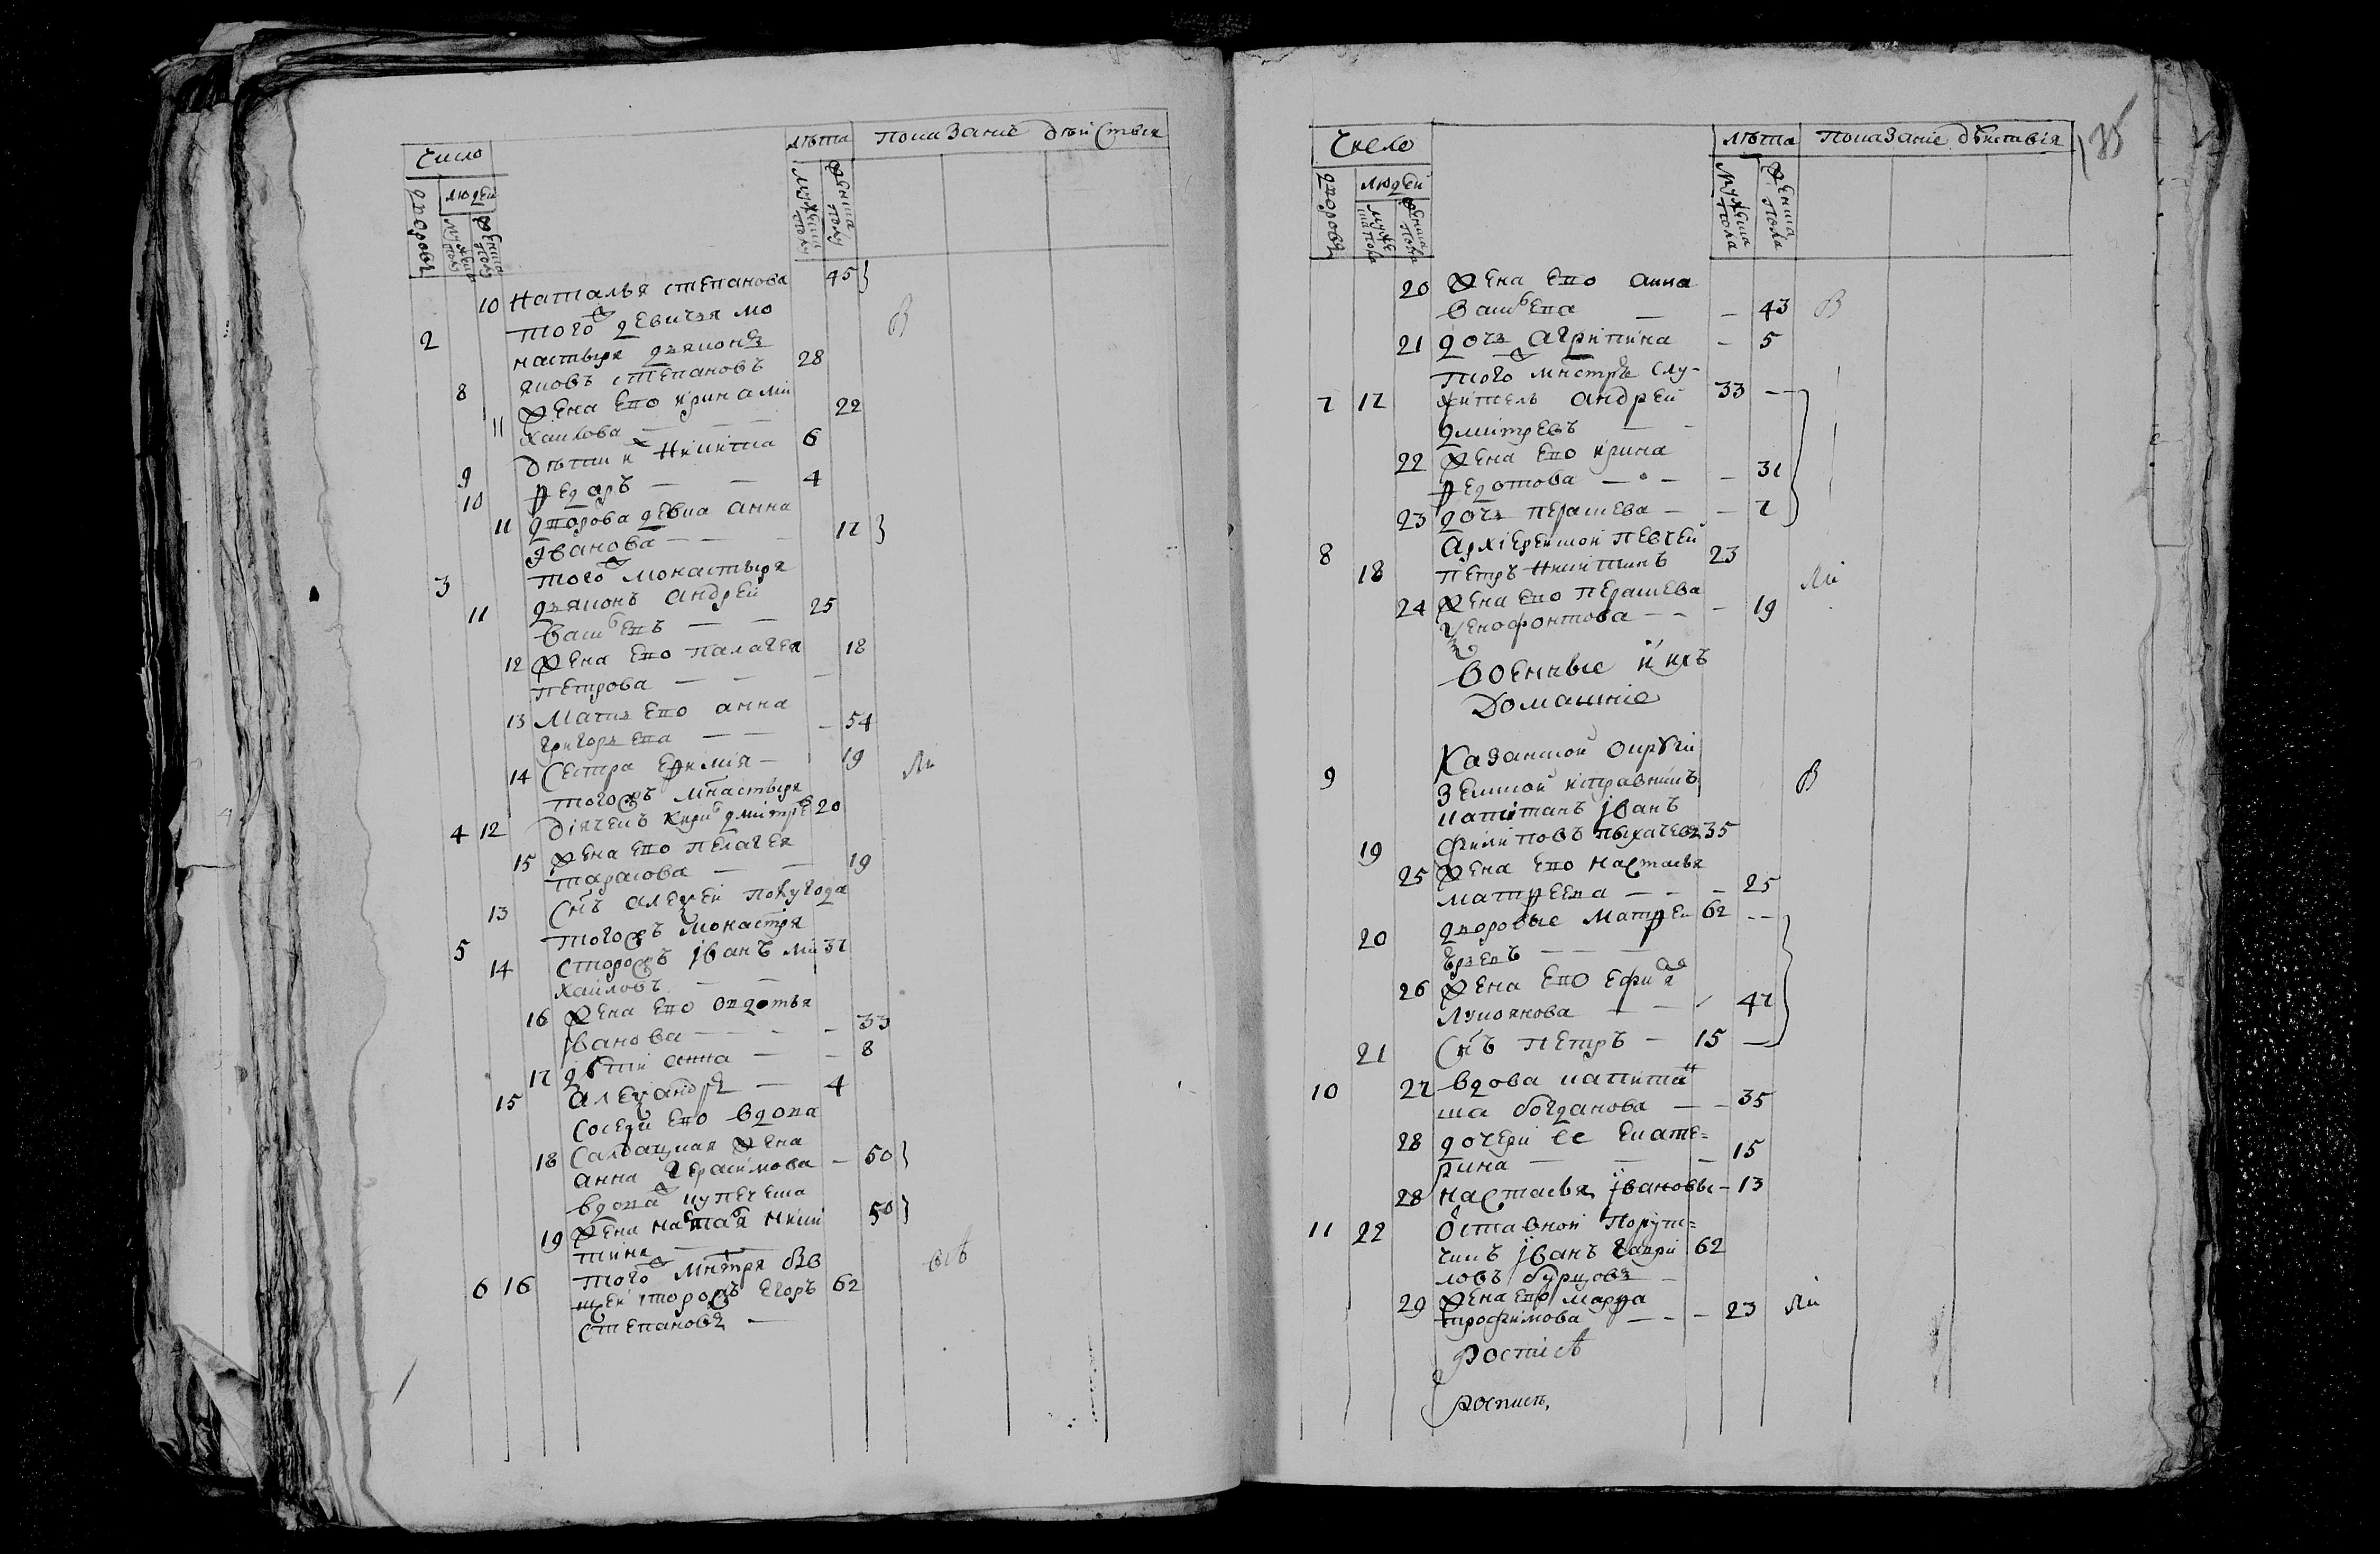 Число лѣта показаніе дѣйствія
дворовъ людей мужеска полу женска полу мужеска полу женска полу
10 Наталья степанова 45
2 того ж девичья мо
настыря дьяконъ
8 яковъ степановъ 28
жена ево ирина ми
11 хаилова — — 22
9 дѣти их Никита 6
10 федоръ — — 4
11 дворова девка анна
Иванова — — — 17
3 того ж монастыря
11 дьяконъ андрей
васильевъ — — 25
12 жена ево палагея 18
петрова — — —
13 мать ево анна
григорьева — — — 54
14 Сестра ефимія — 19
тогожъ мнастыря
4 12 діячекъ кири дмитре 20
15 жена ево пелагея
тарасова — — 19
13 Снъ алеѯей полугода
5 тогожъ монастря
14 сторожъ іванъ ми 37
хаиловъ — —
16 жена ево овдотья
іванова — — — 33
17 дѣти анна — — 8
15 алеѯандръ — 4
соседи ево вдова
18 Салдацкая жена
анна герасимова — 50
вдова ж купечеша
19 жена настася Ники 50
тина —
6 16 того ж мнстря
сторожъ егоръ 62
степановъ —
Число лѣта показаніе дѣйствія
дворовъ людей мужеска пола женска пола мужеска пола женска пола
20 жена ево анна
васильева — — 43
21 дочь агрипина — 5
того ж мнстря слу-
7 17 житель андрей 33 —
дмитревъ — —
22 жена ево ирина
федотова — — — 31
23 дочь парасковья — — 7
8 архіерейской певчей
18 петръ никитинъ 23
24 жена ево
ѯенофонтова — — — 19
военные и ихъ
домашніе
9 Казанской округи
земской исправникъ
капитанъ іванъ
19 филиповъ пыхачевъ 35
25 жена ево настасья
матфеева — — — 25
20 дворовые матфей 62 —
— —
26 жена ево
лукоянова — — 47
21 Снъ петръ — 15 —
10 27 вдова капитан
ша богданова — — 35
28 дочери ее екате=
рина — — — 15
28 настасья івановы — 13
11 22 отставной порут=
чикъ іванъ гаври 62
ловъ бурцовъ —
29 жена ево марфа
трофимова — — — 23
роспись,